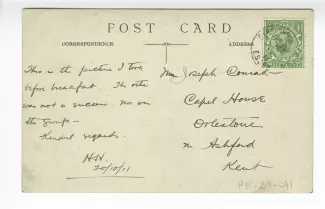 POST CARD
CORRESPONDENCE
ADDRESS
This is the picture I took
before breakfast. The other
was not a success. Nor was
the group—
Kindest regards.
H.H.
20/10/11
Mrs Joseph Conrad
Capel House
Orlestone
nr Ashford
Kent